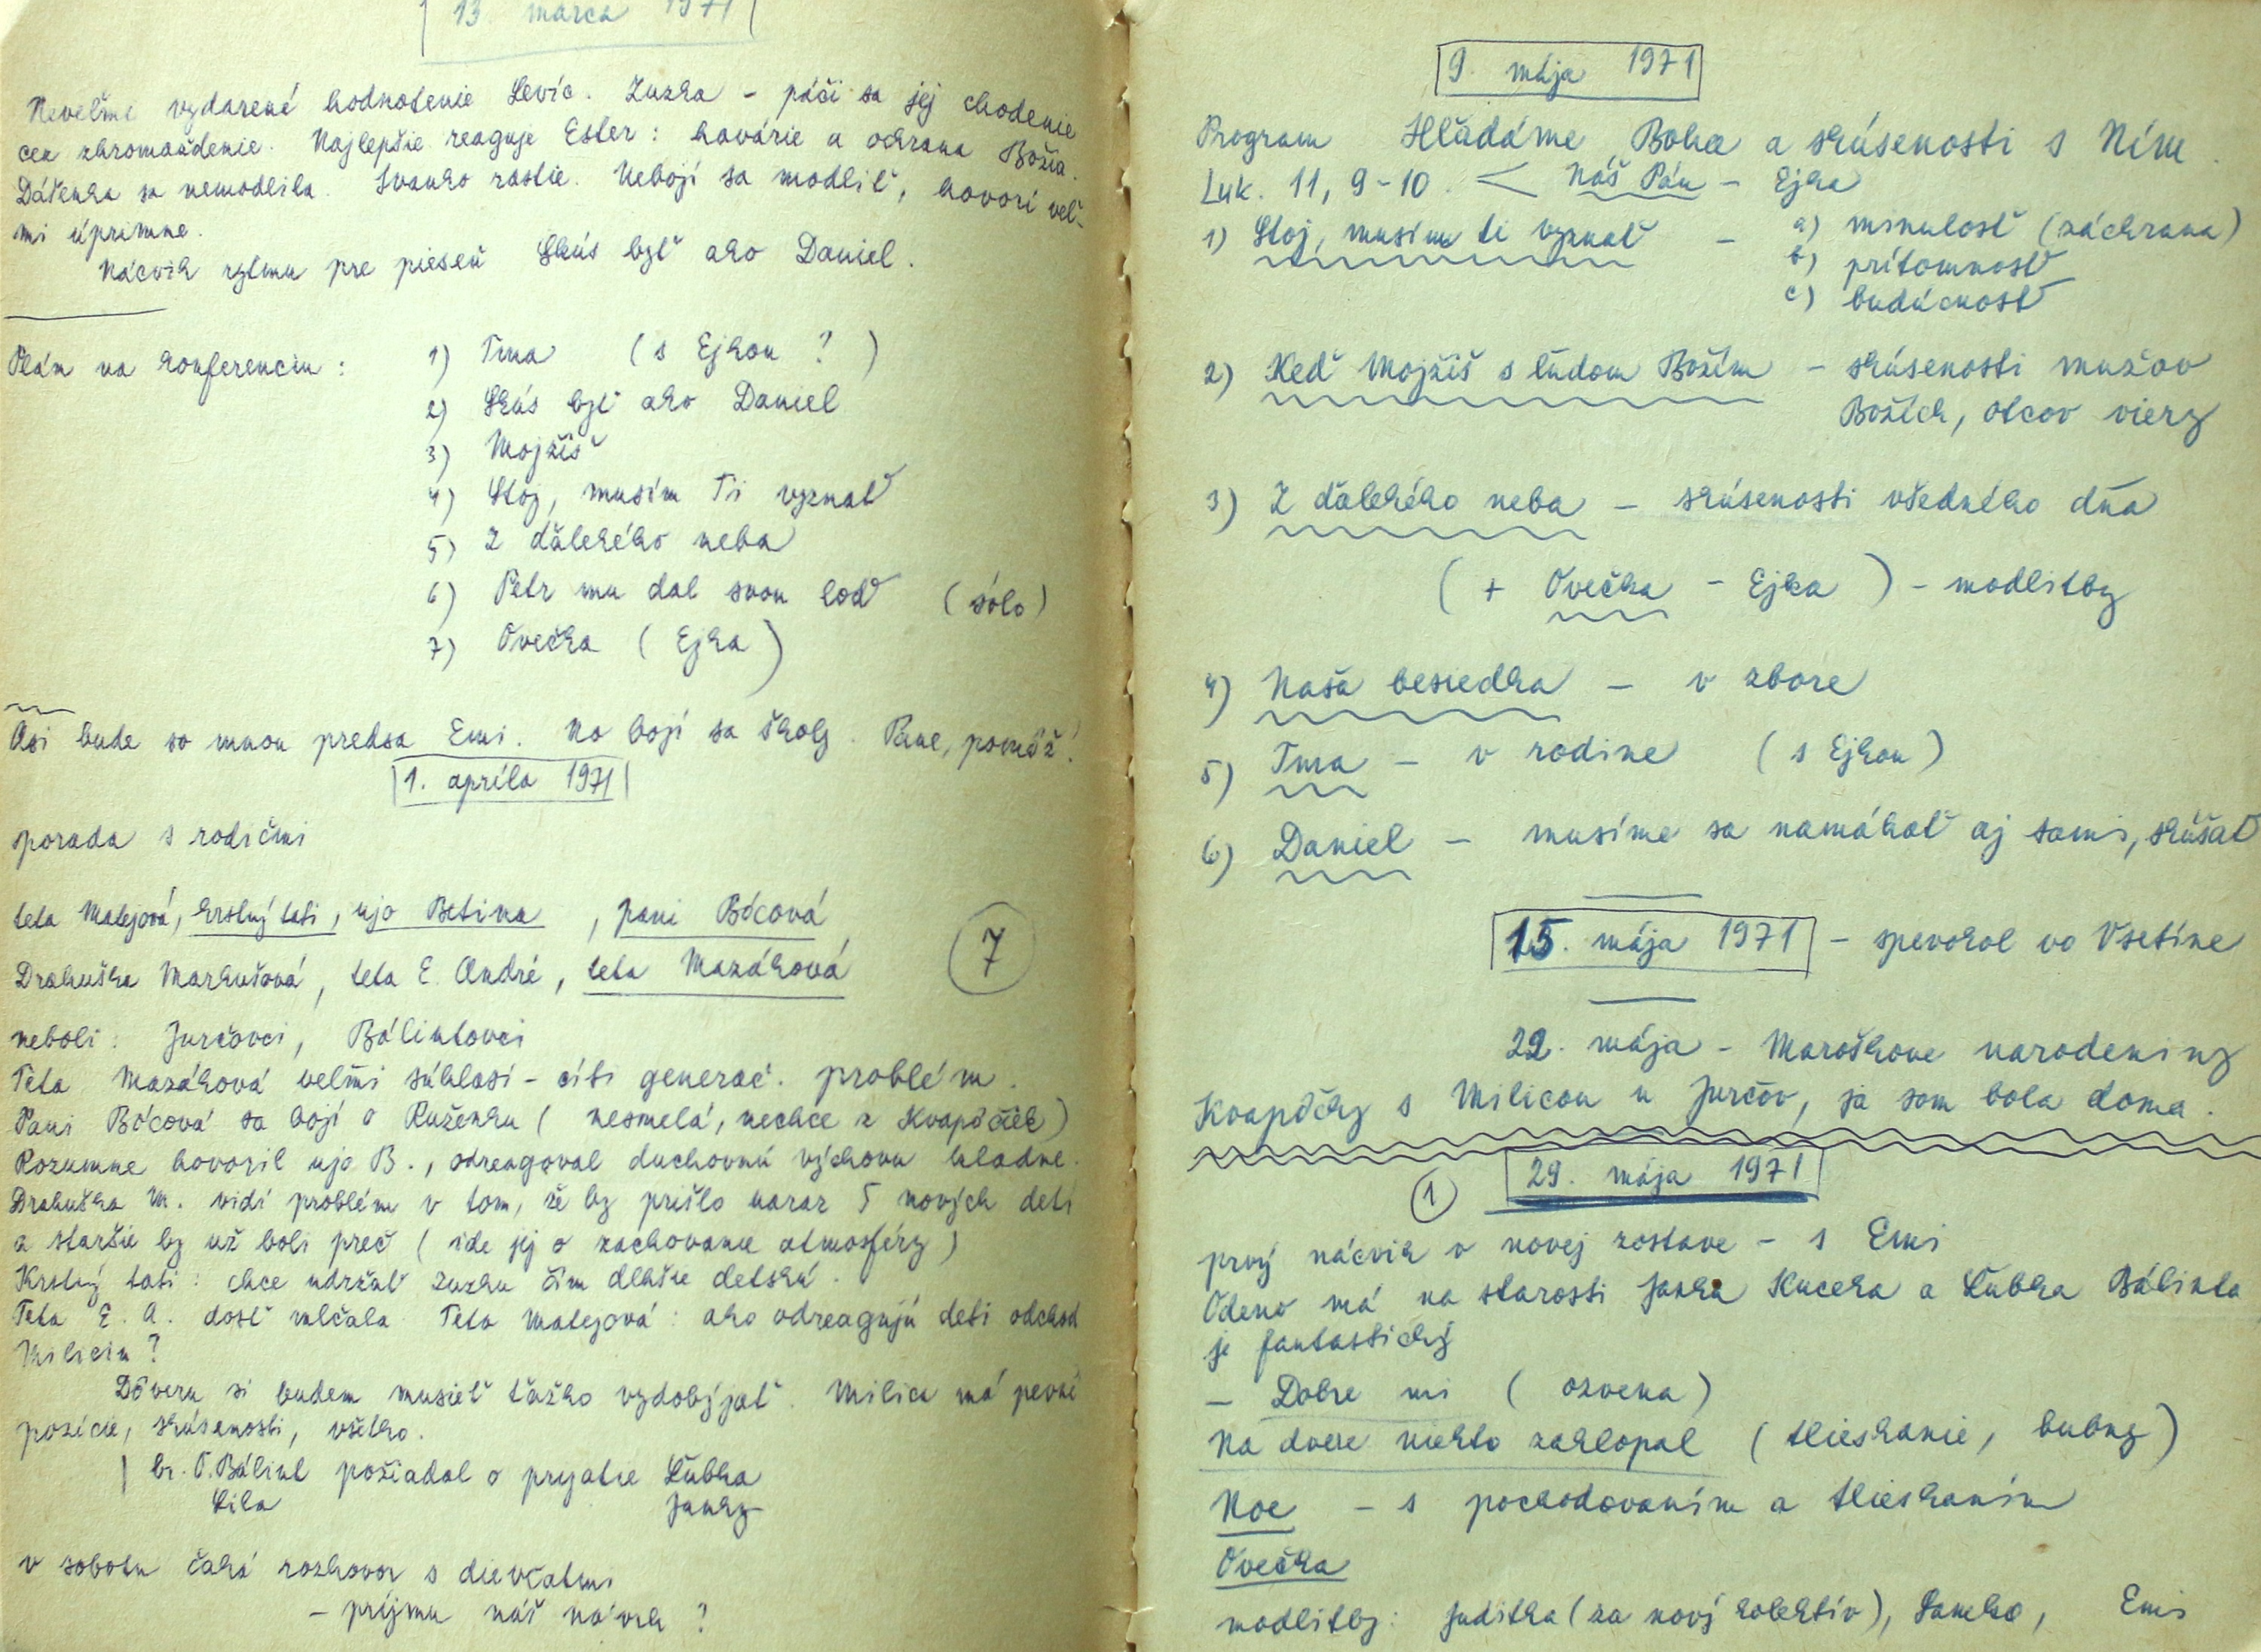 13. marca 1971
Neveľmi vydarené hodnotenie Levíc. Zuzka - páči sa jej chodenie
cez zhromaždenie. Najlepšie reaguje Ester: havárie a ochrana Božia.
Dášenka sa nemodlila. Ivanko rastie. Nebojí sa modliť, hovorí veľ-
mi úprimne.
Nácvik rytmu pre pieseň Skús byť ako Daniel.
Plán na konferenciu:
1) Tma (s Ejkou ?)
2) Skús byť ako Daniel
3) Mojžiš
4) Stoj, musím Ti vyznať
5) Z ďalekého neba
6) Petr mu dal svou loď (sólo)
7) Ovečka (Ejka)
Asi bude so mnou predsa Emi. No bojí sa školy. Pane, pomôž!
1. apríla 1971
porada s rodičmi
teta Matejová, krstný tati, ujo Betina, pani Bócová
Drahuška Markušová, teta E. André, teta Mazáková
7
neboli: Jurčovci, Bálintovci
Teta Mazáková veľmi súhlasí - cíti generač. problém.
Pani Bócová sa bojí o Ruženku (nesmelá, nechce z Kvapôčiek)
Rozumne hovoril ujo B., odreagoval duchovnú výchovu kladne.
Drahuška M. vidí problém v tom, že by prišlo naraz 5 nových detí
a staršie by už boli preč (ide jej o zachovanie atmosféry)
Krstný tati: chce udržať Zuzku čím dlhšie detskú.
Teta E. A. dosť mlčala. Teta Matejová: ako odreagujú deti odchod
Milicin?
Dôveru si budem musieť ťažko vydobýjať. Milica má pevné
pozície, skúsenosti, všetko.
br. O. Bálint požiadal o prijatie Ľubka
Lila Janky
v sobotu čaká rozhovor s dievčatmi
- príjmu náš návrh?
9. mája 1971
Program Hľadáme Boha a skúsenosti s Ním.
Luk. 11, 9-10. < Náš Pán - Ejka
1) Stoj, musím ti vyznať - a) minulosť (záchrana)
b) prítomnosť
c) budúcnosť
2) Keď Mojžiš s ľudom Božím - skúsenosti mužov
Božích, otcov viery
3) Z ďalekého neba - skúsenosti všedného dňa
(+ Ovečka - Ejka) - modlitby
4) Naša besiedka - v zbore
5) Tma - v rodine (s Ejkou)
6) Daniel - musíme sa namáhať aj sami, skúšať
15. mája 1971 - spevokol vo Vsetíne
22. mája - Maroškove narodeniny
Kvapôčky s Milicou u Jurčov, ja som bola doma.
1 29. mája 1971
prvý nácvik v novej zostave - s Emi
Odeno má na starosti Janka Kuceka a Ľubka Bálinta
je fantastický
- Dobre mi (ozvena)
Na dvere niekto zaklopal (tlieskanie, bubny)
Noe - s pochodovaním a tlieskaním
Ovečka
modlitby: Juditka (za nový kolektív), Janko, Emi